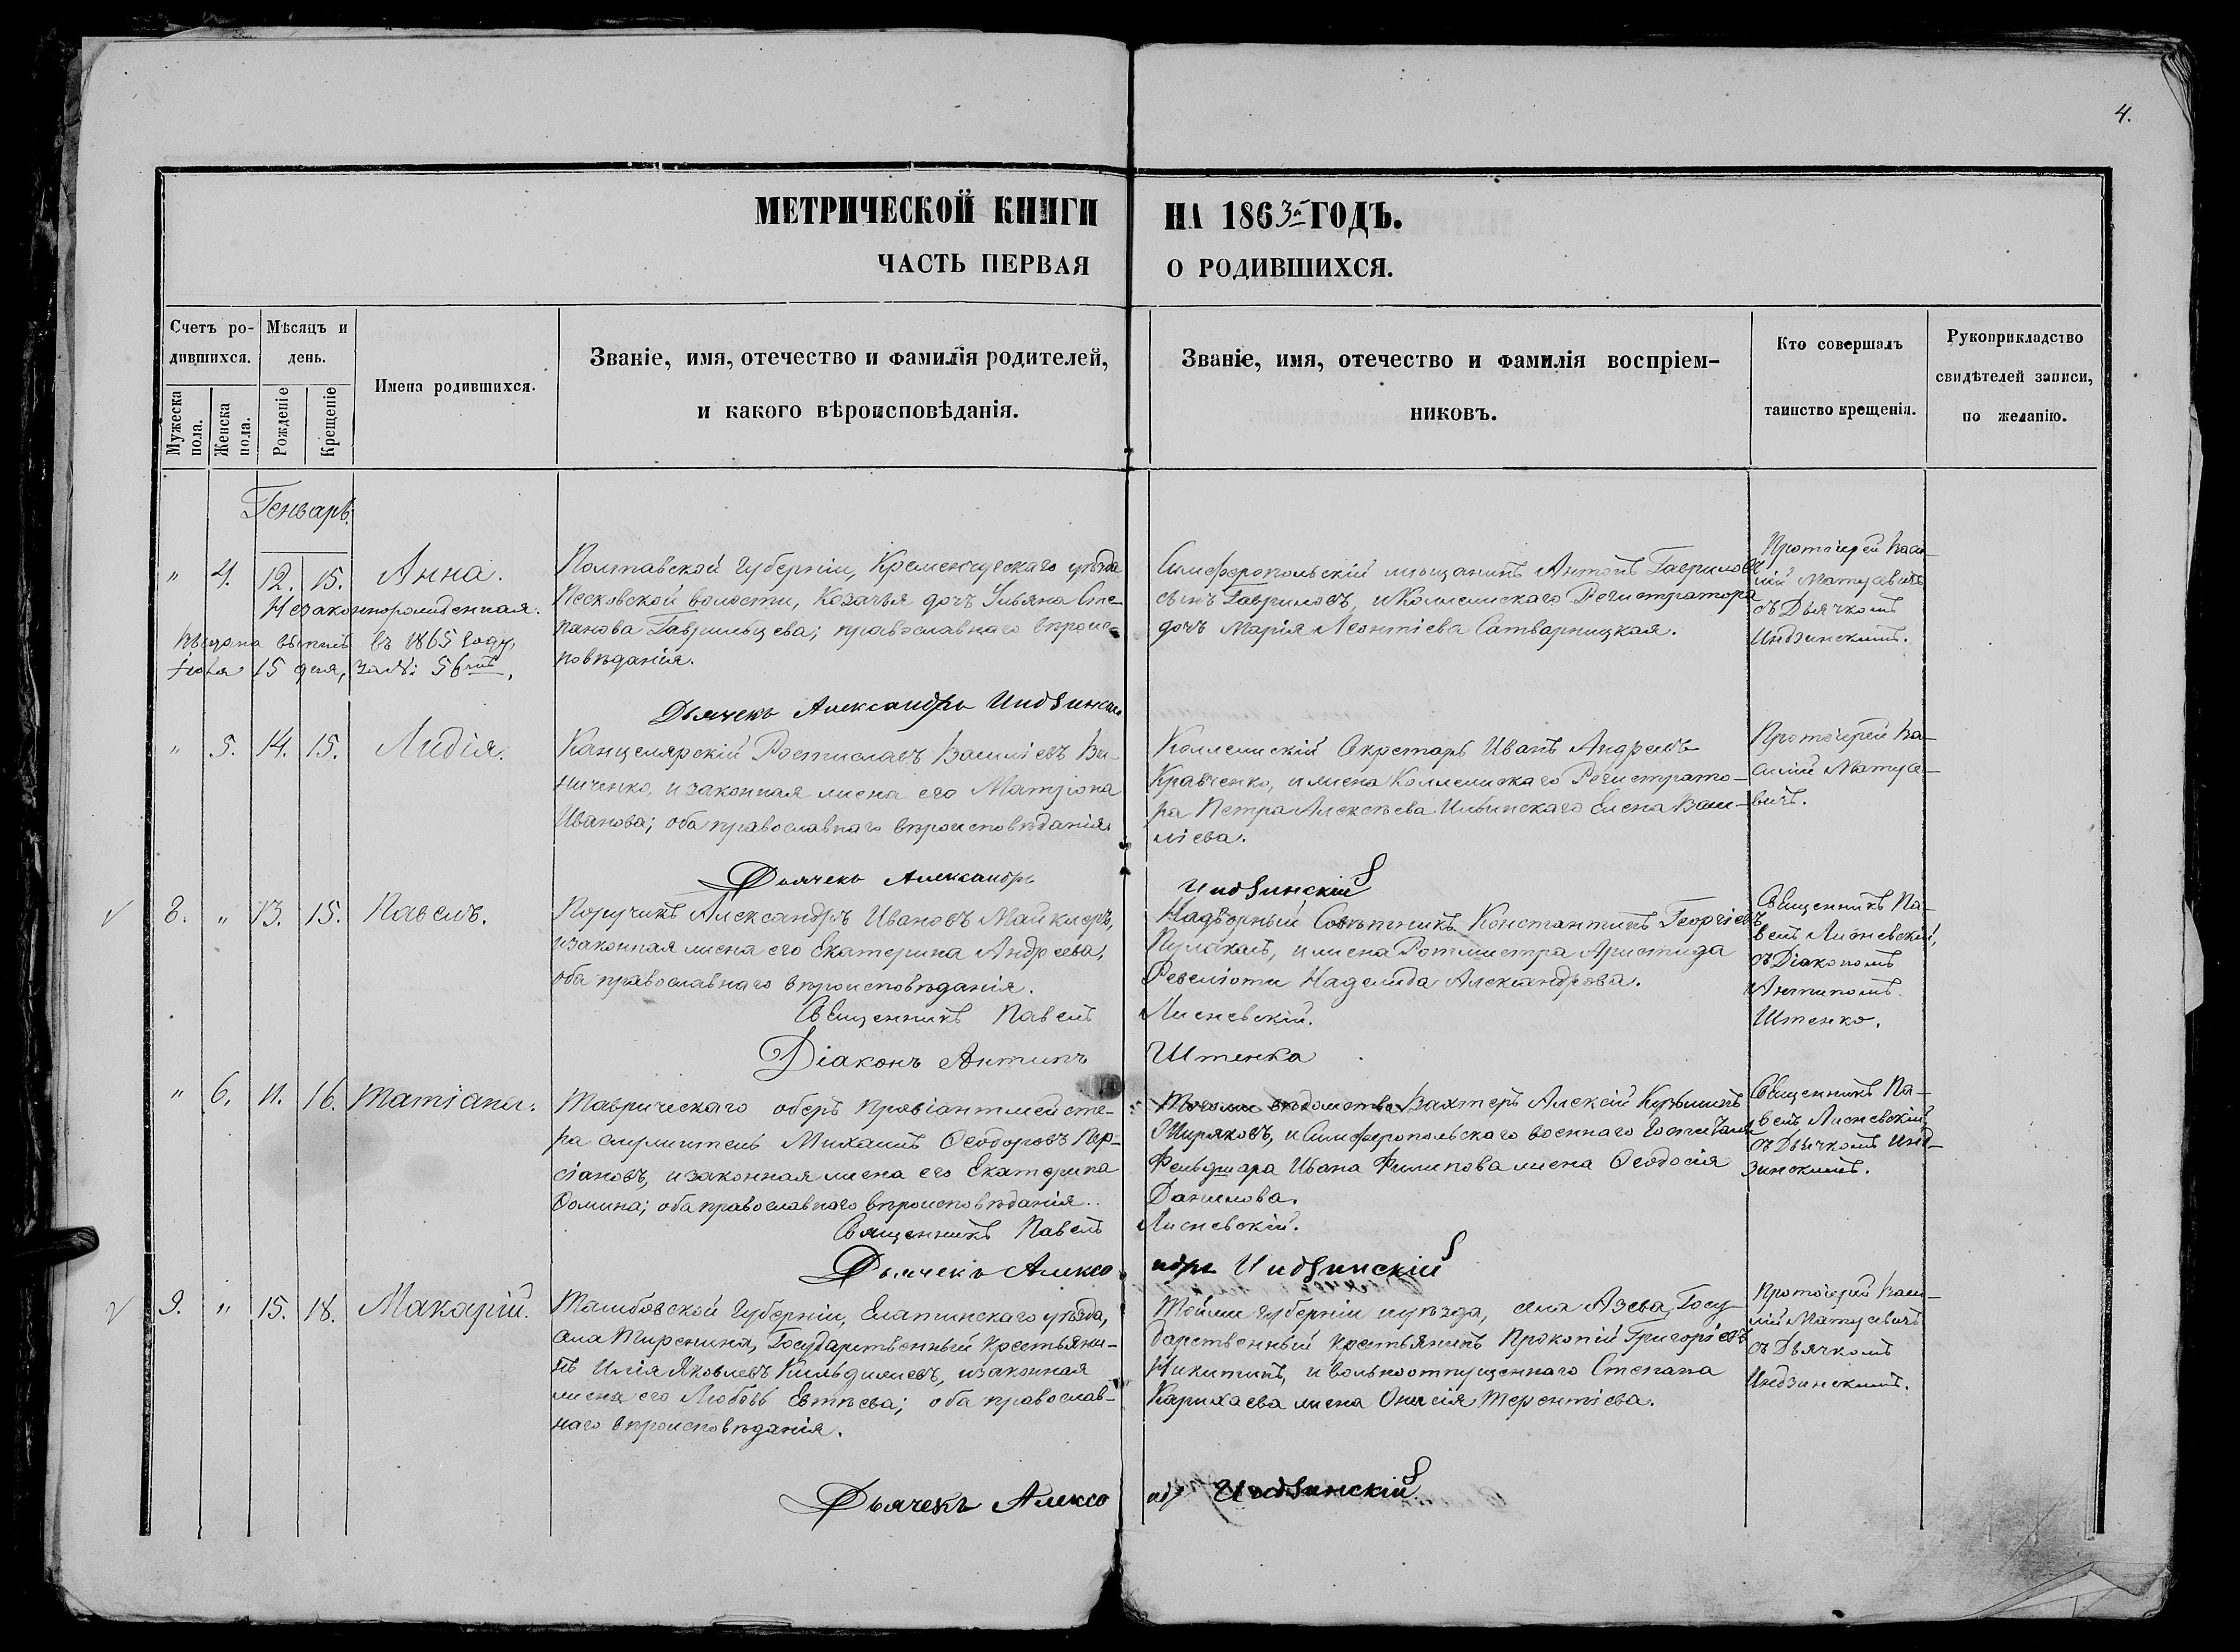 4.
МЕТРИЧЕСКОЙ КНИГИ НА 1863й ГОДЪ.
ЧАСТЬ ПЕРВАЯ О РОДИВШИХСЯ.
Счетъ ро-
дившихся.
Мужеска пола.
Женска пола.
Мѣсяцъ и
день.
Рожденіе
Крещеніе
Имена родившихся.
Званіе, имя, отечество и фамилія родителей,
и какого вѣроисповѣданія.
Званіе, имя, отечество и фамилія воспріем-
никовъ.
Кто совершалъ
таинство крещенія.
Рукоприкладство
свидѣтелей записи,
по желанію.
Генварь.
" 4. 12. 15. Анна.
Незаконнорожденная.
въ 1865 году,
15 дня, за №: 56мъ.
Полтавской Губерніи, Кременчугскаго уѣзда
Песковской волости, Козачья дочь Ульяна Сте-
панова Гаврильцева; православнаго вѣроис-
повѣданія.
Симферопольскій мѣщанинъ Антонъ Гавриловъ
сынъ Гавриловъ, и Коллежскаго Регистратора
дочь Марія Леонтіева Сатварницкая.
Протоіерей Васи-
лій Матусевичъ
съ Дьячкомъ
Индзинскимъ.
Дьячекъ Александръ Индзинскій
" 5. 14. 15. Лидія.
Канцелярскій Ростиславъ Василіевъ Ви-
ниченко, и законная жена его Матрона
Иванова; оба православнаго вѣроисповѣданія.
Коллежскій Секретарь Иванъ Андреевъ
Кравченко, и жена Коллежскаго Регистрато-
ра Петра Алексѣева Ильинскаго Елена Васи-
ліева.
Протоіерей Ва-
силій Матусе-
вичъ.
Дьячекъ Александръ Индзинскій
8. " 13. 15. Павелъ.
Поручикъ Александръ Ивановъ Майклеръ,
и законная жена его Екатерина Андреева;
оба православнаго вѣроисповѣданія.
Надворный Совѣтникъ Константинъ Георгіевъ
и жена Ротмистра Аристида
Ревеліоти Надежда Александрова.
Священникъ Па-
велъ Лисневскій,
съ Діакономъ
Антипомъ
Штенко.
Священникъ Павелъ Лисневскій.
Діаконъ Антипъ Штенка
" 6. 11. 16. Татіана.
Таврическаго оберъ провіантмейсте-
ра смотритель Михаилъ Ѳеодоровъ Пер-
сіановъ, и законная жена его Екатерина
Ѳомина; оба православнаго вѣроисповѣданія.
Тогоже вѣдомства Вахтеръ Алексій Кузьминъ
Ширяковъ, и Симферопольскаго военнаго Госпиталя
Фельдшера Ивана Филипова жена Ѳеодосія
Данилова.
Священникъ Па-
велъ Лисневскій,
съ Дьячкомъ Инд-
зинскимъ.
Священникъ Павелъ Лисневскій.
Дьячекъ Александръ Индзинскій
9. " 15. 18. Макарій.
Тамбовской Губерніи, Елатинскаго уѣзда,
села Ширенина, Государственный Крестьяни-
нъ Илія Яковлевъ Кильдишевъ, и законная
жена его Любовь Евтѣева; оба православ-
наго вѣроисповѣданія.
Тойже Губерніи и уѣзда, села Азева, Госу-
дарственный крестьянинъ Прокопій Григоріевъ
Никитинъ, и вольноотпущеннаго Степана
Карихаева жена Онисія Терентіева.
Протоіерей Васи-
лій Матусевичъ
съ Дьячкомъ
Индзинскимъ.
Дьячекъ Александръ Индзинскій